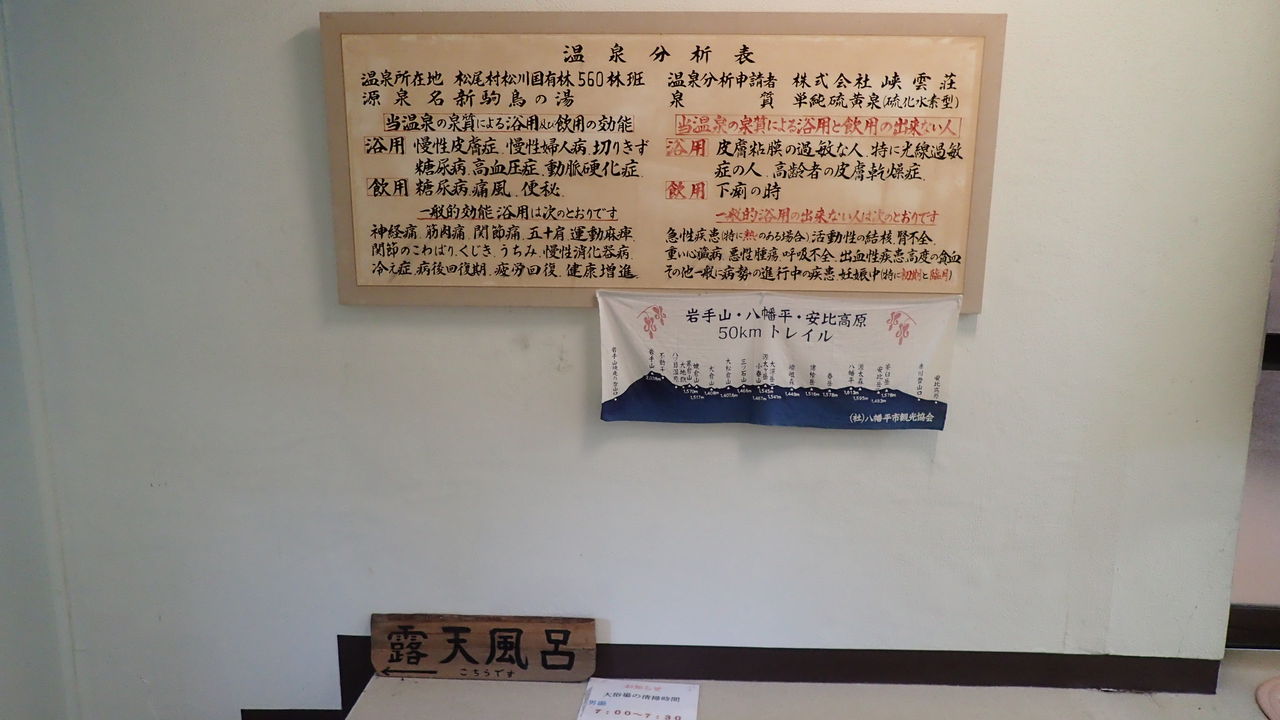 温泉分析表
温泉所在地 松尾村松川国有林560林班
源泉名 新駒鳥の湯
当温泉の泉質による浴用及び飲用の効能
浴用 慢性皮膚症、慢性婦人病、切りきず
糖尿病、高血圧症、動脈硬化症
飲用 糖尿病、痛風、便秘、
一般的効能 浴用は次のとおりです
神経痛、筋肉痛、関節痛、五十肩、運動麻痺、
関節のこわばり、くじき、うちみ、慢性消化器病、
冷え症、病後回復期、疲労回復、健康増進、
温泉分析申請者 株式会社 峡雲荘
泉質 単純硫黄泉(硫化水素型)
当温泉の泉質による浴用と飲用の出来ない人
浴用 皮膚粘膜の過敏な人、特に光線過敏
症の人、高齢者の皮膚乾燥症、
飲用 下痢の時
一般的浴用の出来ない人は次のとおりです
急性疾患(特に熱のある場合)活動性の結核、腎不全、
重い心臓病、悪性腫瘍、呼吸不全、出血性疾患、高度の貧血
その他一般に病勢の進行中の疾患、妊娠中(特に初期と臨月)
岩手山・八幡平・安比高原
50kmトレイル
岩手山
不動平
大松倉山
三ツ石山
八幡平
安比岳
安比高原
(社)八幡平市観光協会
露天風呂
こちらです
お知らせ
大浴場の清掃時間
男湯
7:00~7:30